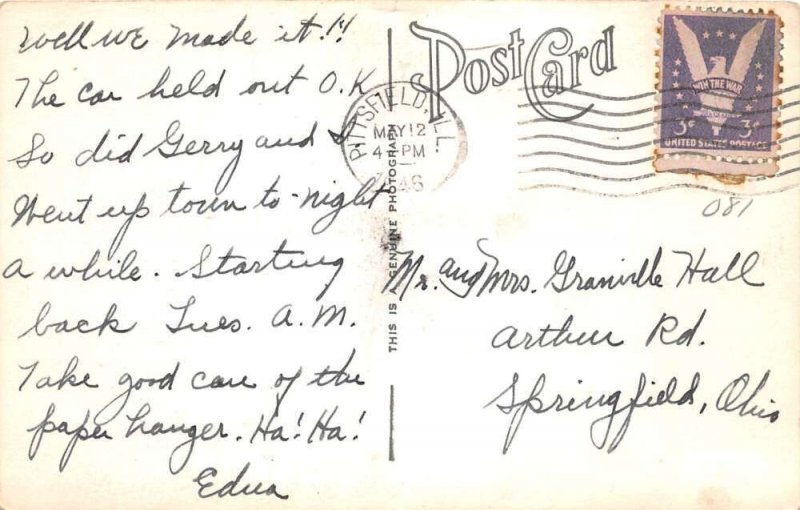 Well we made it!!!
The car held out O.K
So did Gerry and I
Went up town to-night
a while. Starting
back Tues. A.M.
Take good care of the
paper hanger. Ha! Ha!
Edna
Post Card
PITTSFIELD, ILL.
MAY 12
4 PM
46
THIS IS A GENUINE PHOTOGRAPH
WIN THE WAR
3¢ 3¢
UNITED STATES POSTAGE
081
Mr. and Mrs. Granville Hall
Arthur Rd.
Springfield, Ohio